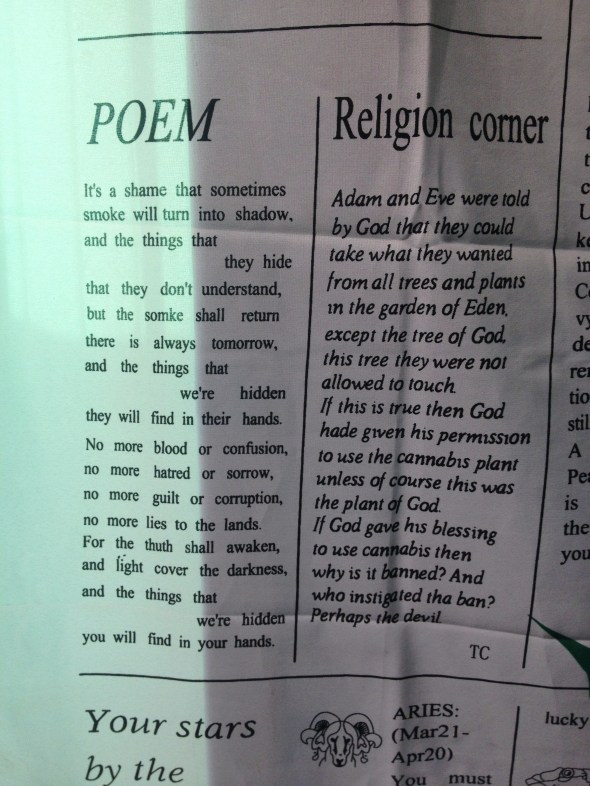 POEM
It's a shame that sometimes
smoke will turn into shadow,
and the things that
they hide
that they don't understand,
but the somke shall return
there is always tomorrow,
and the things that
we're hidden
they will find in their hands.
No more blood or confusion,
no more hatred or sorrow,
no more guilt or corruption,
no more lies to the lands.
For the thuth shall awaken,
and light cover the darkness,
and the things that
we're hidden
you will find in your hands.
Religion corner
Adam and Eve were told
by God that they could
take what they wanted
from all trees and plants
in the garden of Eden,
except the tree of God,
this tree they were not
allowed to touch
If this is true then God
hade given his permission
to use the cannabis plant
unless of course this was
the plant of God.
If God gave his blessing
to use cannabis then
why is it banned? And
who instigated tha ban?
Perhaps the devil
TC
Your stars
by the
ARIES:
(Mar21-
Apr20)
You must
lucky
stil
A
is
the
you